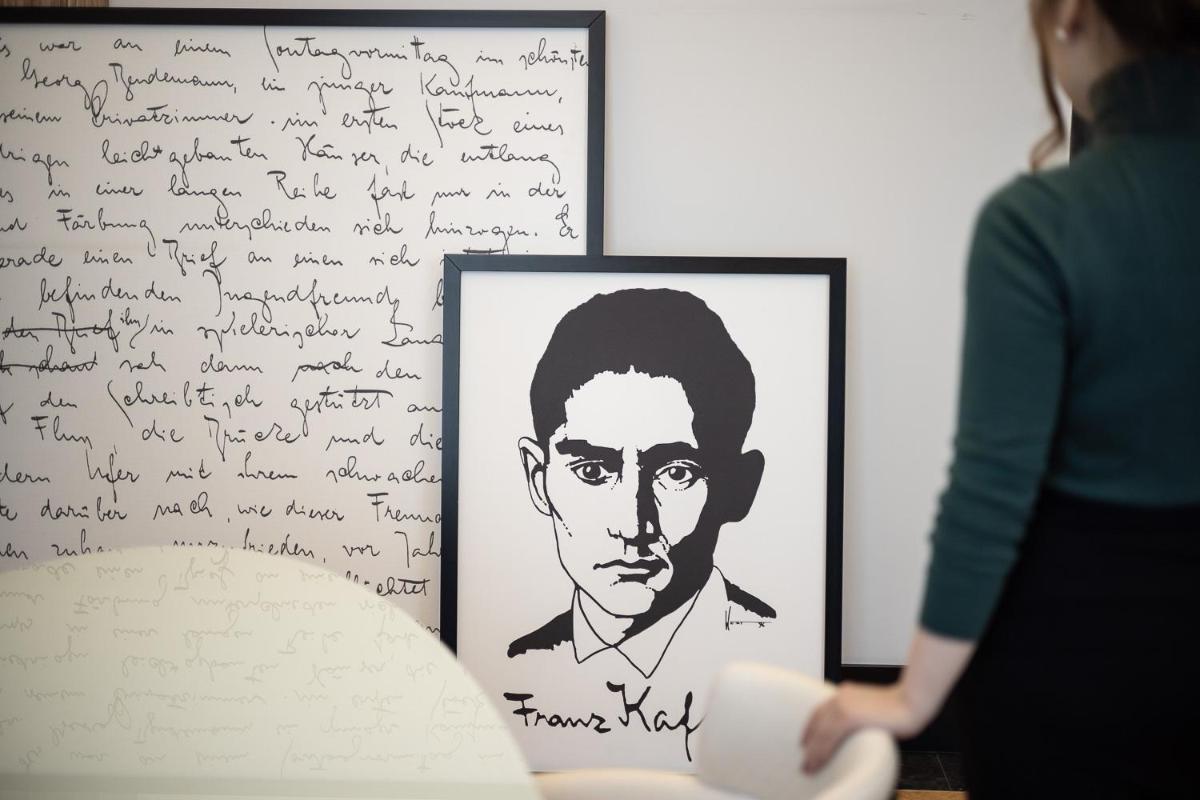 s war an einem Sontagvormittag im schönste
Georg Bendemann, ein junger Kaufmann,
seinem Privatzimmer im ersten Stock eines
drigen leichtgebauten Häuser, die entlang
es in einer langen Reihe fast nur in der
nd Färbung unterschieden sich hinzogen. Er
erade einen Brief an einen sich
befindenden Jugendfreund b
den Brief ihn in spielerischer Lang
schaut sah dann nach den
f den Schreibtisch gestützt au
Fluß, die Brücke und die
dern Ufer mit ihrem schwachen
te darüber nach, wie dieser Freund
en zuhau frieden, vor Jah
chtet
Franz Kaf